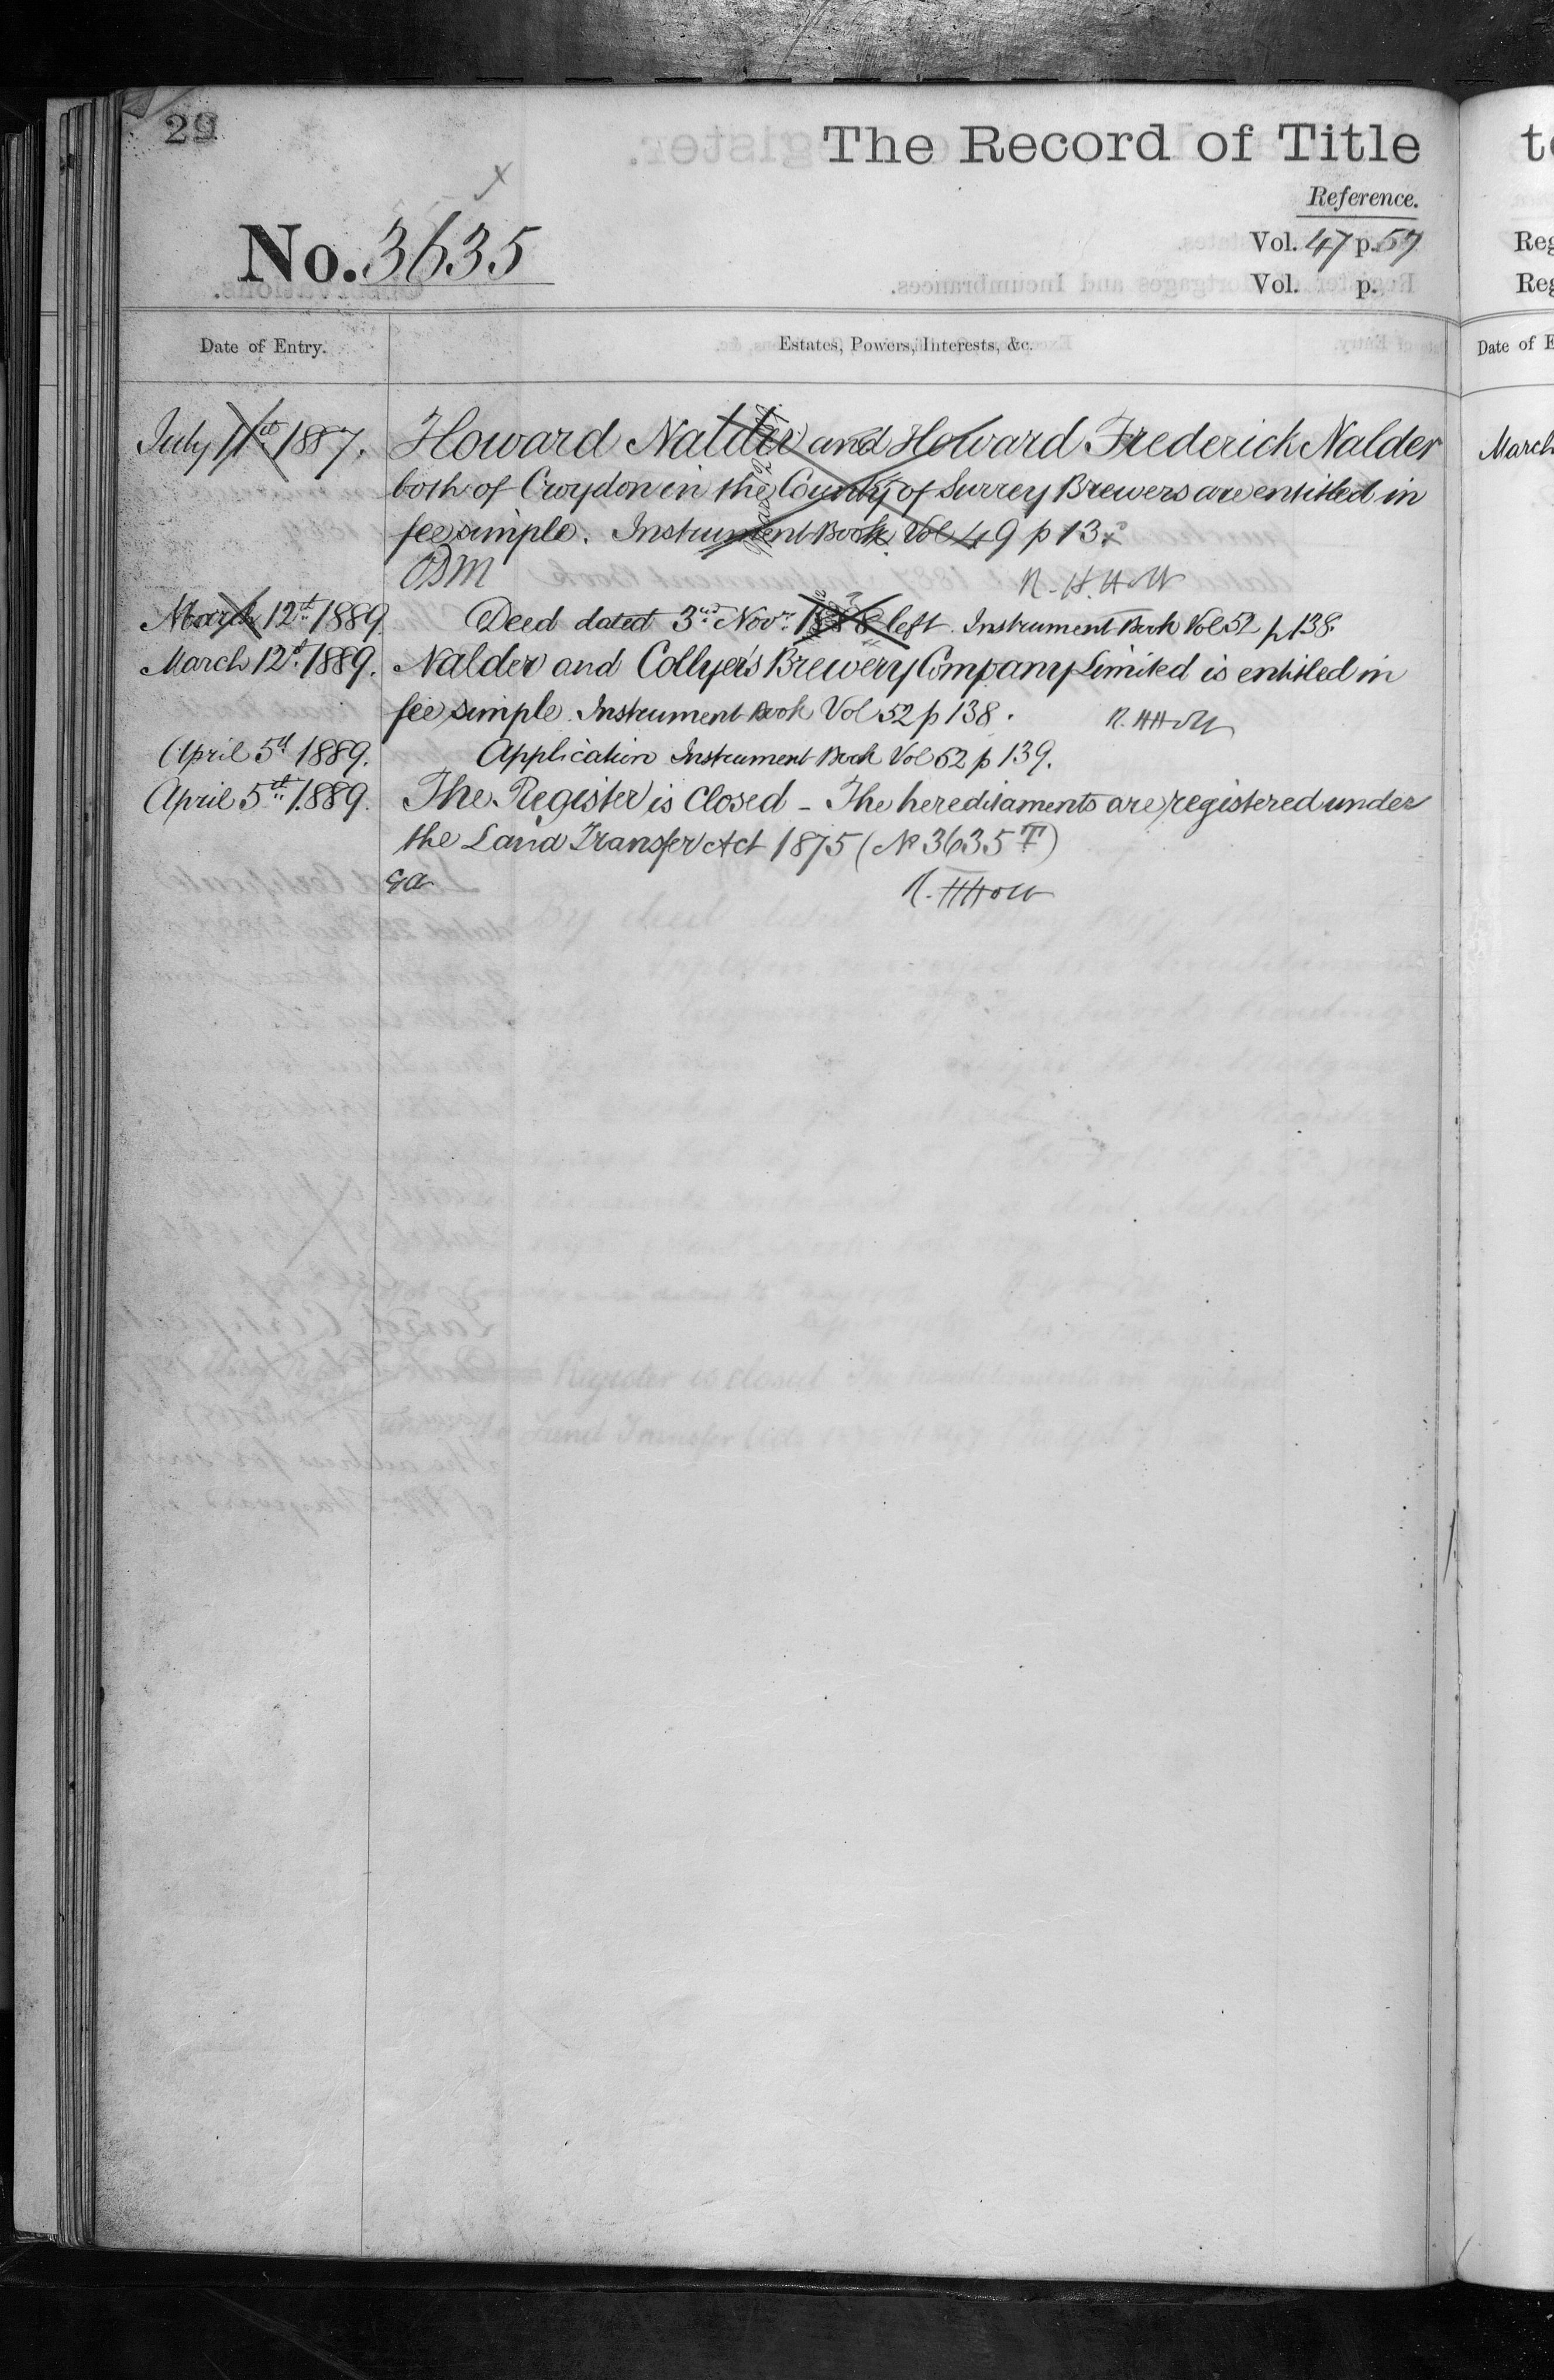 29
The Record of Title
Reference.
No. 3635
Vol. 47 p. 57
Vol. p.
Date of Entry.
Estates, Powers, Interests, &c.
July 11th 1887. Howard Nalder and Howard Frederick Nalder
both of Croydon in the County of Surrey Brewers are entitled in
fee simple. Instrument Book Vol 49 p 13.
March 12th 1889. Deed dated 3rd Novr. 1888 left. Instrument Book Vol 52 p 138.
March 12th 1889. Nalder and Collyer's Brewery Company Limited is entitled in
fee simple. Instrument Book Vol 52 p 138.
April 5th 1889. Application Instrument Book Vol 52 p 139.
April 5th 1889. The Register is closed - The hereditaments are registered under
the Land Transfer Act 1875 (No 3635 T)
to
Reg
Reg
Date of E
March